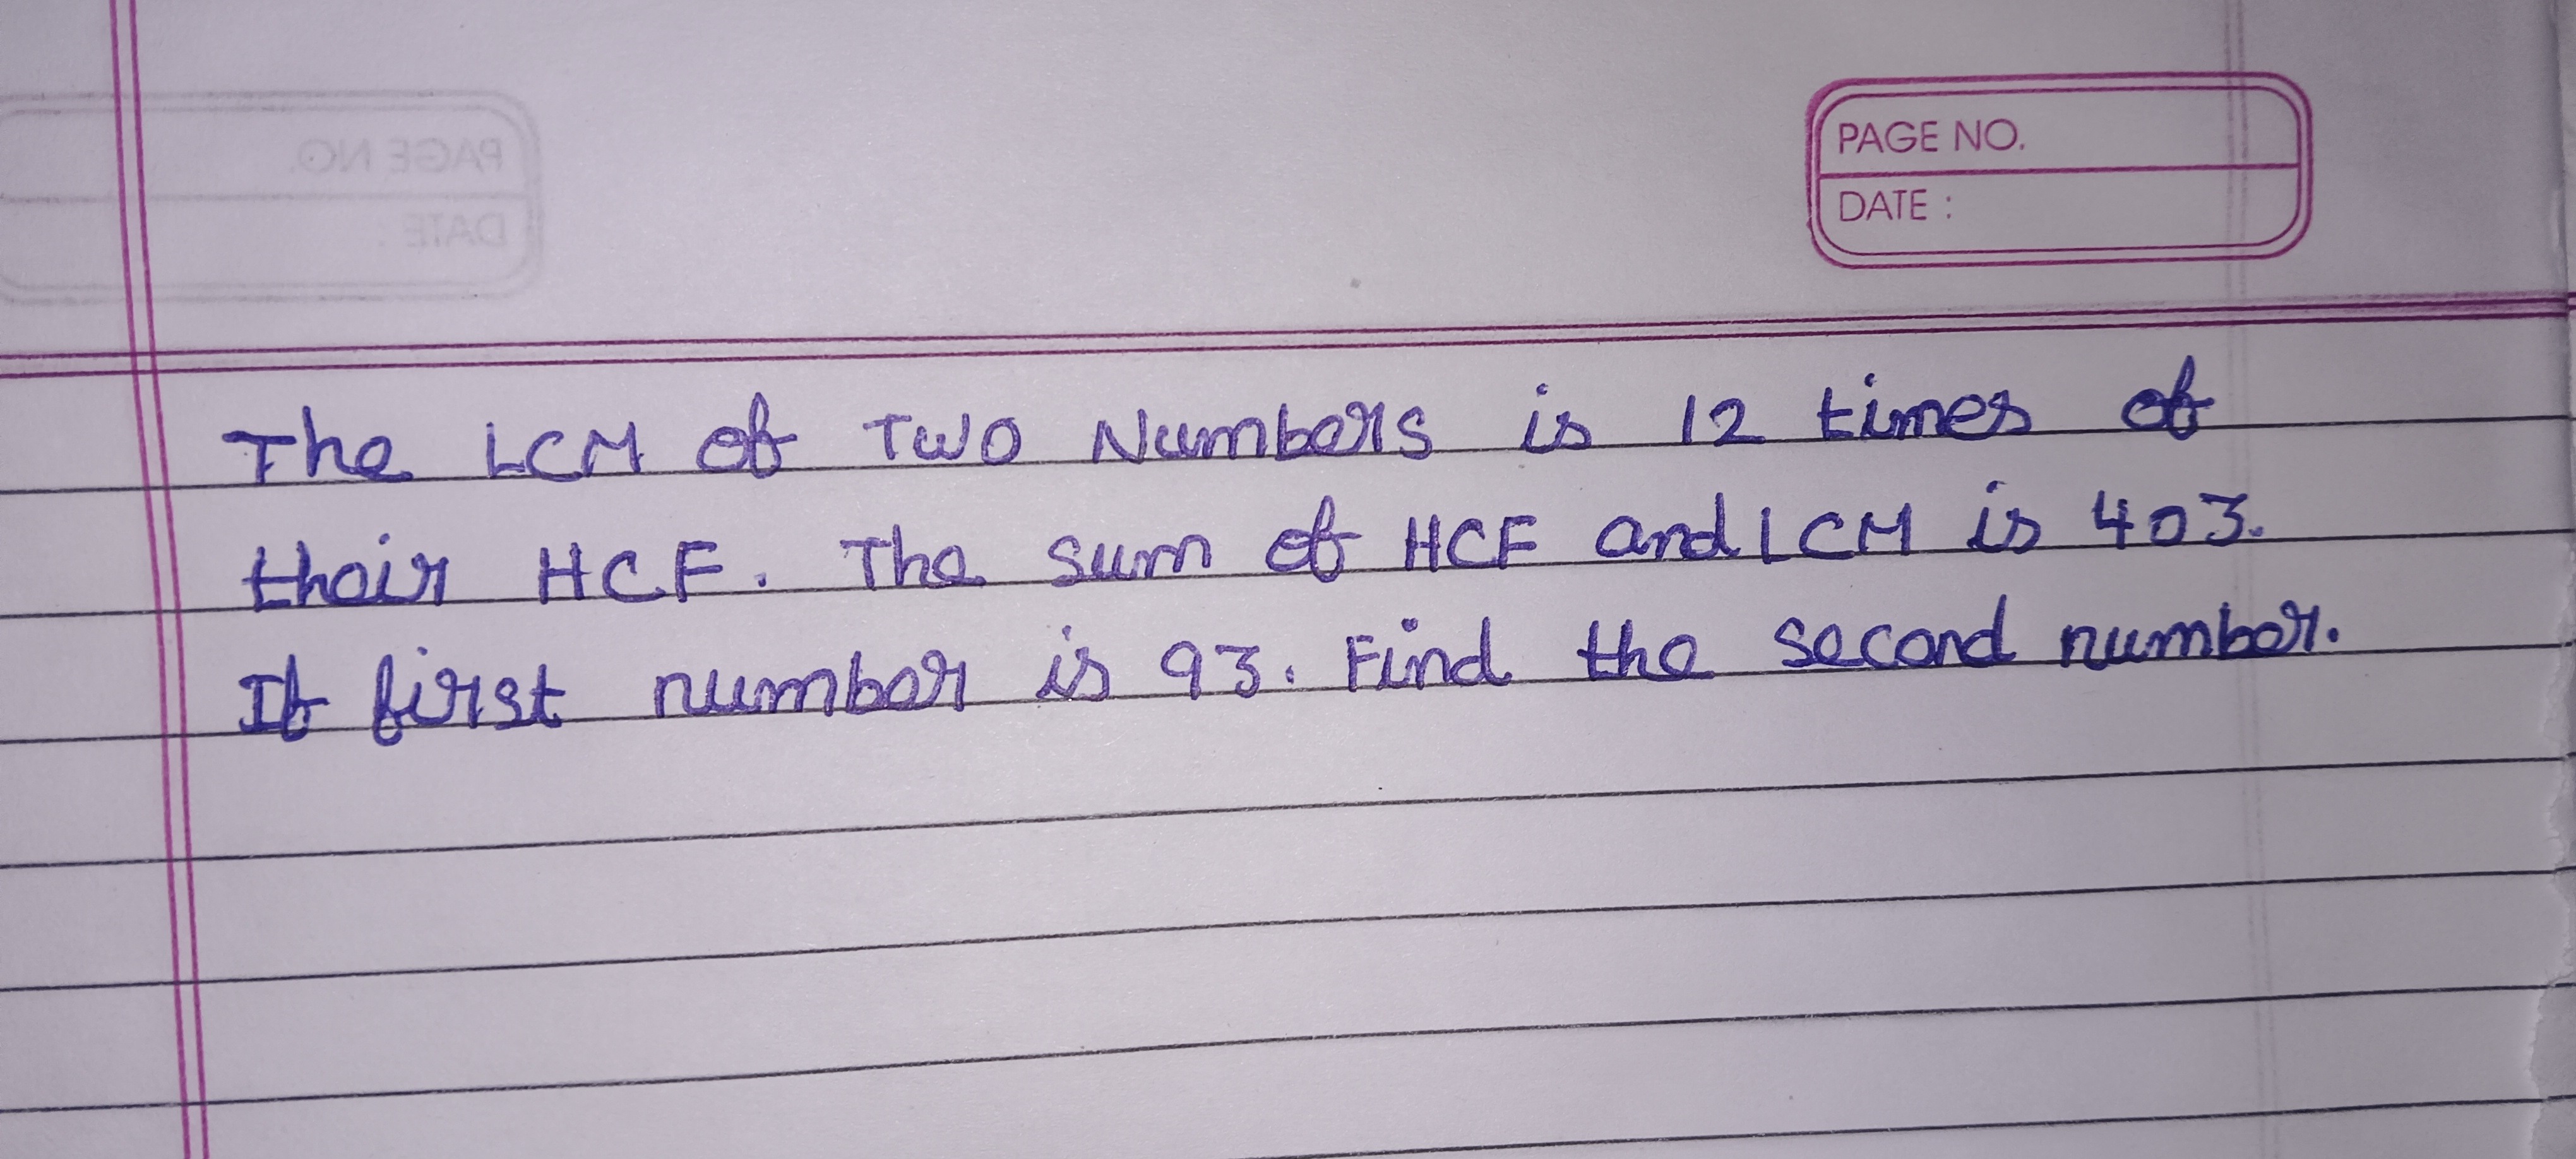 PAGE NO.
DATE :
The LCM of Two Numbers is 12 times of
their HCF. The sum of HCF and LCM is 403.
If first number is 93. Find the second number.